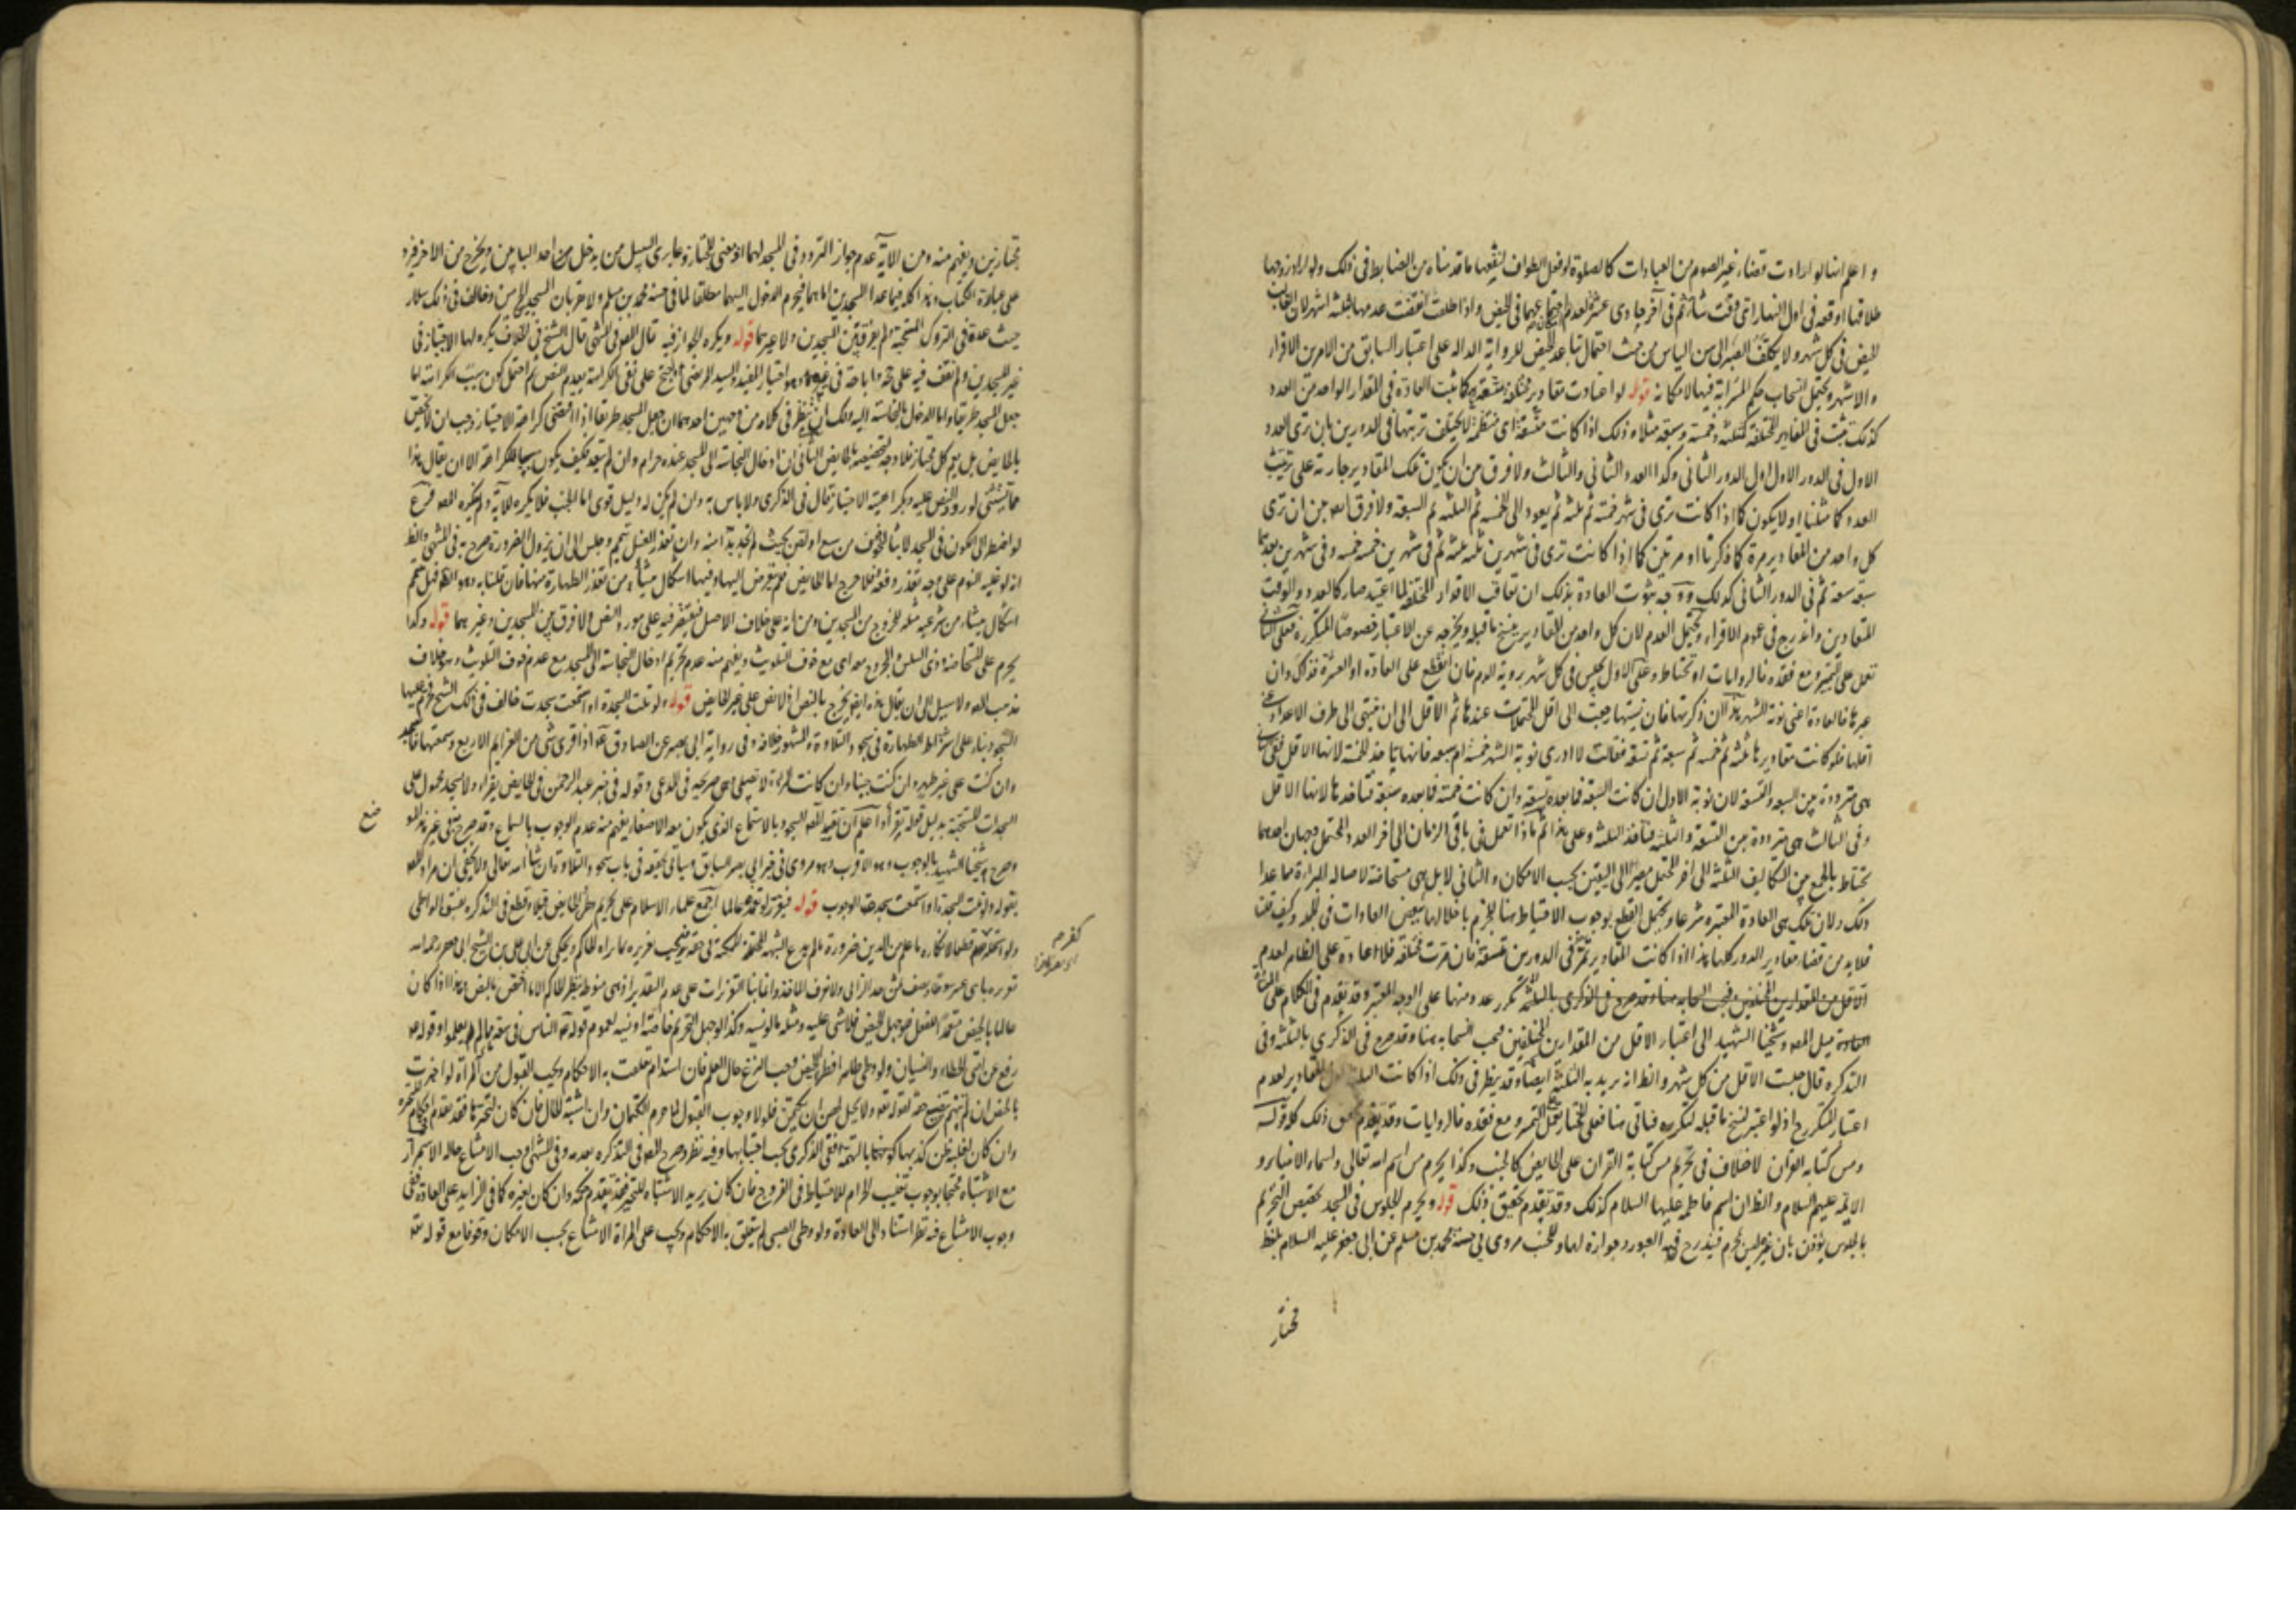 و اعلم انها لو ارادت قضاء غير الصوم من العبادات كالصلوة او فعل الطواف لنفعها ما قدمناه من الضابط في ذلك ولو اراد زوجها
طلاقها اوقعه في اول النهار اي وقت شاء ثم في آخر حادي عشره لعدم اجتماعهما في الحيض واذا طلقت انقضت عدتها بثلثة اشهر لان الغالب
الحيض في كل شهر ولا تكلف الصبر الى سن الياس من حيث احتمال تباعد الحيض للرواية الدالة على اعتبار السابق من الامرين الاقراء
والاشهر ويحتمل انسحاب حكم المسترابة فيها لامكانه قوله لو اعتادت مقادير مختلفة متسقة كما تثبت العادة في المقدار الواحد من العدد
كذلك تثبت في المقادير المختلفة كثلثة وخمسة وسبعة مثلا وذلك اذا كانت متسقة اي منتظمة لا يختلف ترتبها في الدورين بان ترى العدد
الاول في الدور الاول اول الدور الثاني وكذا العدد الثاني والثالث ولا فرق من ان يكون تلك المقادير جارية على ترتيب
العدد كما مثلنا او لا يكون كما اذا كانت ترى في شهر خمسة ثم ثلثة ثم يعود الى الخمسة ثم الثلثة ثم السبعة ولا فرق ايضا بين ان ترى
كل واحد من المقادير مرة كما ذكرنا او مرتين كما اذا كانت ترى في شهرين ثلثة ثلثة ثم في شهرين خمسة خمسة وفي شهرين بعدهما
سبعة سبعة ثم في الدور الثاني كذلك ووجه ثبوت العادة بذلك ان تعاقب الاقدار المختلفة لما اعتيد صار كالعدد والوقت
المتعادين واندرج في عموم الاقراء ويحتمل العدم لان كل واحد من المقادير ينسخ ما قبله ويخرجه عن الاعتبار خصوصا المتكررة فعلى الثاني
تعمل على التمييز ومع فقده فالروايات او تحتاط وعلى الاول تجلس في كل شهر برؤية الدم فان انقطع على العادة او العشرة فذاك وان
عبرها فالعادة اعني نوبة الشهر هذا ان ذكرتها فان نسيتها رجعت الى اقل المحتملات عندها ثم الاقل الى ان ينتهي الى طرف الاعداد اعني
اقلها فلو كانت مقاديرها ثلثة ثم خمسة ثم سبعة ثم تسعة فقالت لا ادري نوبة الشهر خمسة ام سبعة فانها تاخذ الخمسة لانها الاقل ففي الثاني
هي مترددة بين السبعة والتسعة لان نوبة الاول ان كانت السبعة فما بعده تسعة وان كانت خمسة فما بعده سبعة فتاخذها لانها الاقل
وفي الثالث هي مترددة بين التسعة والثلثة فتاخذ الثلثة وعلى هذا ثم ماذا تعمل في باقي الزمان الى آخر العدد المحتمل وجهان احدهما
تحتاط بالجمع بين التكاليف الثلثة الى آخر المحتمل مصيرا الى اليقين بحسب الامكان والثاني لا بل هي مستحاضة لاصالة البراءة مما عدا
ذلك ولان تلك هي العادة المعتبرة شرعا ويحتمل القطع بوجوب الاحتياط هنا للجزم باخلالها ببعض العادات في الجملة وكيف كان
فلا بد من قضاء مقادير الدور كلها هذا اذا كانت المقادير في الدورين متسقة فان مرت مختلفة فلا عادة على الظاهر لعدم
تكرر عدد منها على الوجه المعتبر وقد تقدم في الكلام على
ميل المصنف وشيخنا الشهيد الى اعتبار الاقل من المقدارين المختلفين فيجب انسحابه هنا وقد صرح في الذكرى بالثلثة وفي
التذكرة قال جلست الاقل من كل شهر والظاهر انه يريد به الثلثة ايضا وقد ينظر في ذلك اذا كانت لعدم
اعتبار المتكرر اذ لو اعتبر لنسخ ما قبله لتكرره فياتي هنا فعلى المختار تعمل التمييز ومع فقده فالروايات وقد تقدم ذلك كله قوله
ومس كتابة القرآن لا خلاف في تحريم مس كتابة القرآن على الحايض كالجنب وكذا يحرم مس اسم الله تعالى واسماء الانبياء و
الائمة عليهم السلام والظاهر ان اسم فاطمة عليها السلام كذلك وقد تقدم تحقيق ذلك قوله ويحرم الجلوس في المسجد تخصيص التحريم
بالجلوس يؤذن بان غيره ليس بمحرم فيندرج فيه العبور وجوازه لها وللجنب مروي في حسنة محمد بن مسلم عن ابي جعفر عليه السلام بلفظ
مختار
مجتازين ويفهم منه ومن الآية عدم جواز التردد في المسجد لهما اذ معنى المجتاز وعابري السبيل من يدخل من احد البابين ويخرج من الآخر
على عبارة الكتاب وهذا كله فيما عدا المسجدين اما هما فيحرم الدخول اليهما مطلقا لما في حسنة محمد بن مسلم ولا يقربان المسجدين الحرمين وخالف في ذلك سلار
حيث عده في التروك المستحبة ولم يفرق بين المسجدين ولا غيرهما قوله ويكره الجواز فيه قال المصنف في المنتهى قال الشيخ في الخلاف يكره لها الاجتياز في
غير المسجدين ولم نقف فيه على حجة واباحه في غيره وهو اختيار المفيد والسيد المرتضى واحتج على نفي الكراهة بعدم النص ثم احتمل كون سبب الكراهة اما
جعل المسجد طريقا واما ادخال النجاسة اليه ولك ان تنظر في كلامه من وجهين احدهما ان جعل المسجد طريقا اذا اقتضى كراهة الاجتياز وجب ان لا يختص
بالحايض بل يعم كل مجتاز فلا وجه لتخصيصه بالحايض الثاني ان ادخال النجاسة الى المسجد عنده حرام وان لم تتعد فكيف يكون سببا للكراهة الا ان يقال هذا
مما يستثنى لورود النص عليه وبكراهية الاجتياز قال في الذكرى ولا باس به وان لم يكن له دليل قوي اما الجنب فلا يكره للآية ولم يذكره المصنف فرع
لو اضطر الى الكون في المسجد لا بثا لخوف من سبع او لص بحيث لم تجد بدا منه وان تعذر الغسل تيمم وجلس الى ان يزول الضرورة صرح به في المنتهى والظاهر
انه لو غلبه النوم على وجه تعذر دفعه فلا حرج اما الحايض فلم يتعرض اليها وفيها اشكال ينشأ من تعذر الطهارة منها فان قلنا به وهو الظاهر فهل تيمم
اشكال ينشاء من شرعية مثله للخروج من المسجدين ومن انه على خلاف الاصل فيقتصر فيه على مورد النص ولا فرق بين المسجدين وغيرهما قوله وكذا
يحرم على المستحاضة وذي السلس والمجروح معه اي مع خوف التلويث ويفهم منه عدم تحريم ادخال النجاسة الى المسجد مع عدم خوف التلويث وهو خلاف
مذهب المصنف ولا سبيل الى ان يقال هذه ايضا يخرج بالنص اذ لا نص على غير الحايض قوله ولو تلت السجدة او استمعت سجدت خالف في ذلك الشيخ فحرم عليها
السجود بناء على اشتراط الطهارة في سجود التلاوة والمشهور خلافه وفي رواية ابي بصير عن الصادق ع اذا قرئ شئ من العزايم الاربع وسمعتها فاسجد
وان كنت على غير طهر وان كنت جنبا وان كانت المراة لا تصلي وهي صريحة في المدعى وقوله في خبر عبد الرحمن في الحايض يقراء ولا يسجد محمول على
السجدات المستحبة بدليل قوله تقرأ واعلم ان تقييد المصنف السجود بالاستماع الذي يكون معه الاصغاء يفهم منه عدم الوجوب بالسماع وقد صرح به في غير هذا
وصرح شيخنا الشهيد بالوجوب وهو الاقرب وهو مروي في خبر ابي بصير السابق وسياتي تحقيقه في باب سجود التلاوة ان شاء الله تعالى ولا يخفى ان مراد المصنف
بقوله ولو تلت السجدة او استمعت سجدت الوجوب قوله فيعزر لو تعمده عالما اجمع علماء الاسلام على تحريم وطئ الحايض قبلا وقطع في التذكرة بفسق الواطئ
ولو استحله فهو كفر قطعا لانكاره ما علم من الدين ضرورة ما لم يدع الشبهة المحتملة في حقه ويجب تعزيره بما يراه الحاكم ويحكى عن ابي علي بن الشيخ ابي جعفر رحمه الله
عالما بالحيض متعمدا الفعل فلو جهل الحيض فلا شئ عليه ومثله ما لو نسيه وكذا لو جهل التحريم خاصة او نسيه لعموم قوله ع الناس في سعة ما لم يعلموا وقوله ص
رفع عن امتي الخطاء والنسيان ولو وطئ ظاهرا فظهر الحيض وجب النزع حال العلم فان استدام تعلقت به الاحكام ويجب القبول من المراة لو اخبرت
بالحيض ان لم يتهمها لقوله تعالى ولا يحل لهن ان يكتمن فلولا وجوب القبول لما حرم الكتمان وان اشتبه الحال فان كان لتحيرها فقد تقدم
وان كان لغلبة ظن كذبها كونها التهمة ففي الذكرى يجب اجتنابها وفيه نظر وصرح المصنف في التذكرة بعدمه وفي المنتهى اوجب الامتناع حالة
مع الاشتباه محتجا بوجوب تغليب الحرام للاحتياط في الفروج فان كان يريد الاشتباه للتحير فقد تقدم حكمه وان كان لغيره كما في الزايد على العادة ففي
وجوب الامتناع فيه نظر استنادا الى العادة ولو وطئ الصبي لم يتعلق به الاحكام ويجب على المراة الامتناع بحسب الامكان وقوفا مع قوله تعالى